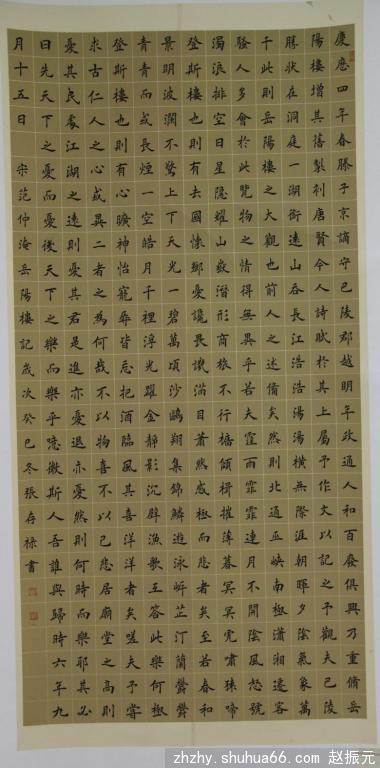 慶應四年春滕子京謫守巴陵郡越明年政通人和百廢俱興乃重脩岳
陽樓增其舊製刻唐賢今人詩賦於其上屬予作文以記之予觀夫巴陵
勝狀在洞庭一湖銜遠山吞長江浩浩湯湯橫無際涯朝暉夕陰氣象萬
千此則岳陽樓之大觀也前人之述備矣然則北通巫峽南極瀟湘遷客
騷人多會於此覽物之情得無異乎若夫霪雨霏霏連月不開陰風怒號
濁浪排空日星隱耀山嶽潛形商旅不行檣傾楫摧薄暮冥冥虎嘯猿啼
登斯樓也則有去國懷鄉憂讒畏譏滿目蕭然感極而悲者矣至若春和
景明波瀾不驚上下天光一碧萬頃沙鷗翔集錦鱗游泳岸芷汀蘭鬱鬱
青青而或長煙一空皓月千裡浮光躍金靜影沉璧漁歌互答此樂何極
登斯樓也則有心曠神怡寵辱皆忘把酒臨風其喜洋洋者矣嗟夫予嘗
求古仁人之心或異二者之為何哉不以物喜不以己悲居廟堂之高則
憂其民處江湖之遠則憂其君是進亦憂退亦憂然則何時而樂耶其必
曰先天下之憂而憂後天下之樂而樂乎噫微斯人吾誰與歸時六年九
月十五日 宋范仲淹岳陽樓記歲次癸巳冬張存祿書
zhzhy.shuhua66.com 赵振元